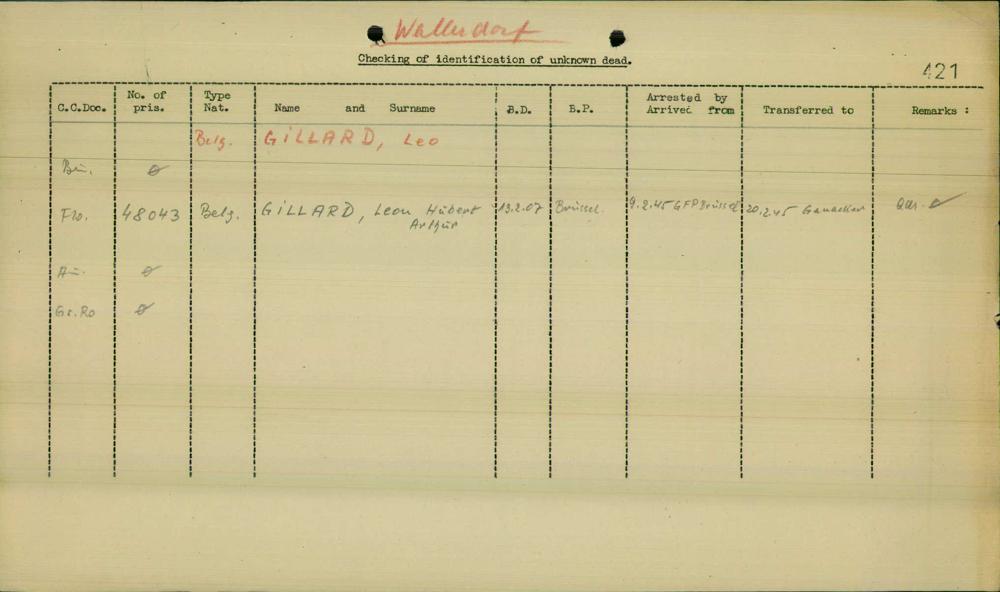 Wallerdorf
Checking of identification of unknown dead.
421
C.C.Doc. No. of pris. Type Nat. Name and Surname B.D. B.P. Arrested by Arrived from Transferred to Remarks :
Belg. GILLARD, Leo
Bu. ø
Flo. 48043 Belg. GILLARD, Leon Hubert Arthur 19.2.07 Brüssel. 9.2.45 GFP Brüssel 20.2.45 Ganacker
ø
Gr.Ro ø